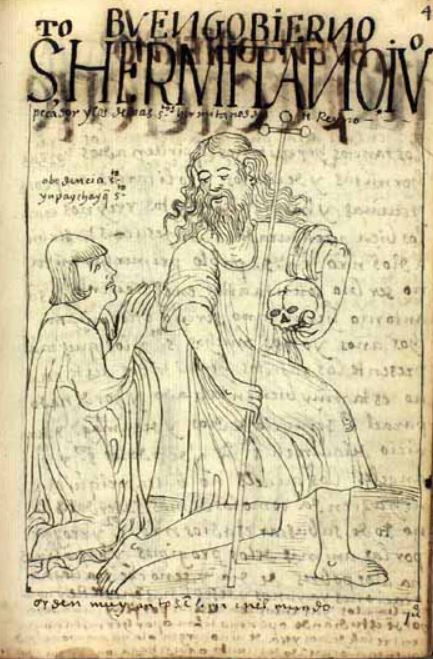 BVENGOBIERNO
STO HERMITAÑO IVO
pecador y los demas stos hermitanos Reyno
obedencia sto
yupaychayq sto
orden muy mundo